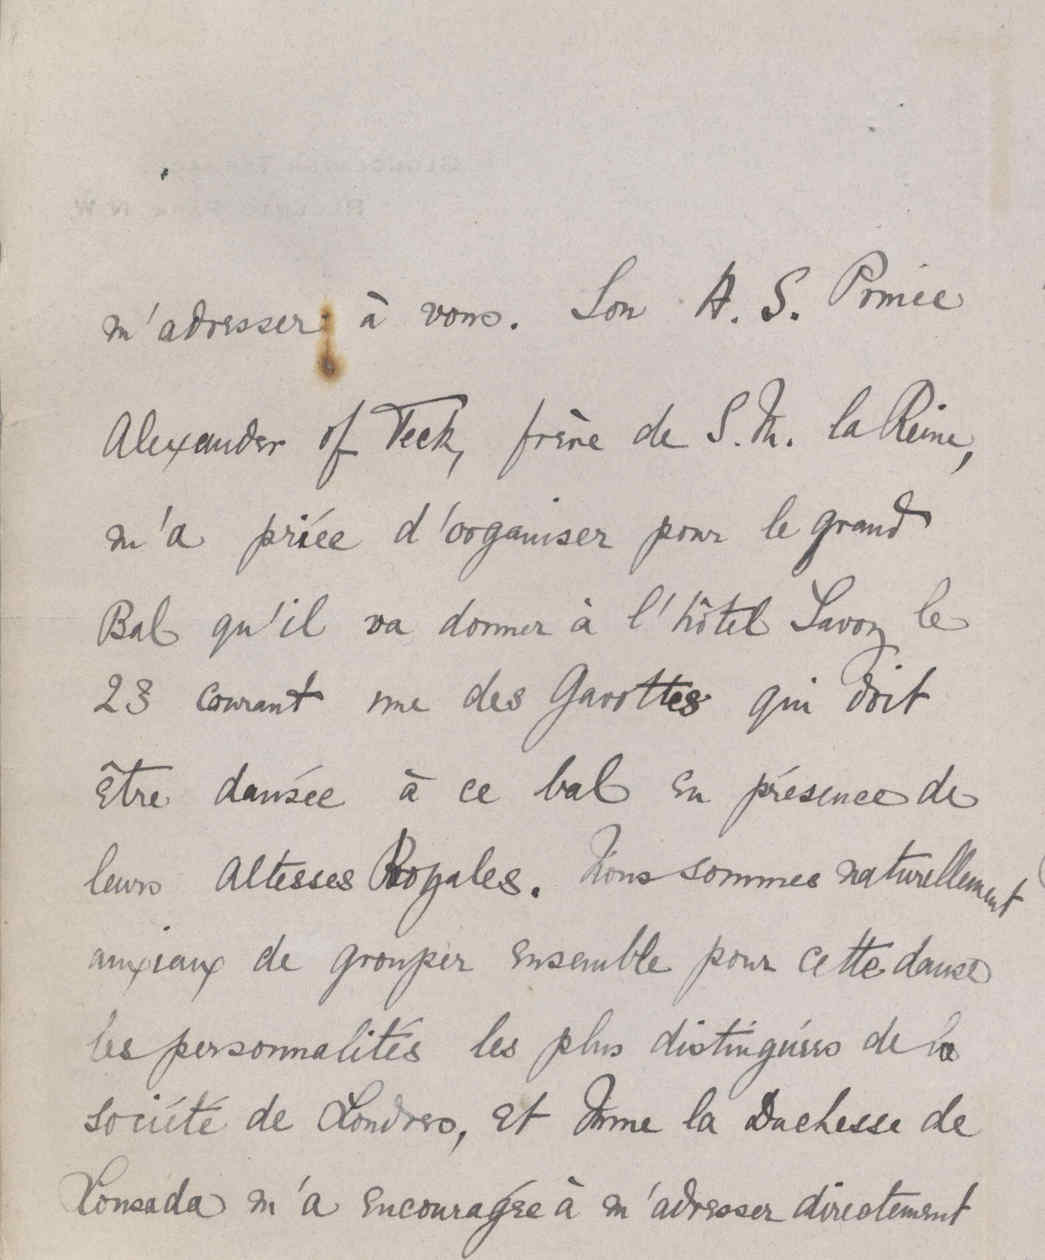 m'adresser à vous. Son A. S. Prince
Alexander of Teck, frère de S. M. la Reine,
m'a priée d'organiser pour le grand
Bal qu'il va donner à l'hôtel Savoy le
23 courant une des Gavottes qui doit
être dansée à ce bal en présence de
leurs Altesses Royales. Nous sommes naturellement
anxieux de grouper ensemble pour cette danse
les personnalités les plus distinguées de la
société de Londres, et Mme la Duchesse de
Lousada m'a encouragée à m'adresser directement